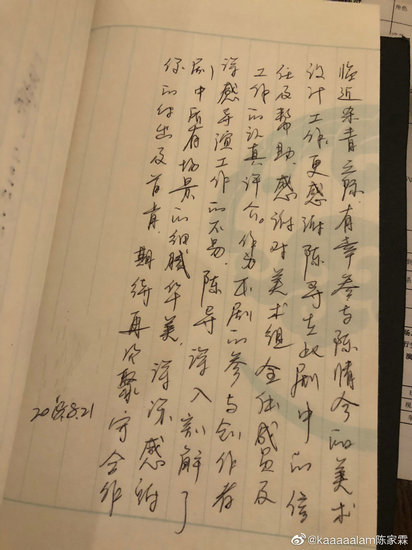 临近杀青之际有幸参与陈情令的美术
设计工作,更感谢陈导在此剧中的信
任及帮助,感谢对美术组全体成员及
工作的认真评介。作为本剧的参与创作者
深感导演工作的不易,陈导深入剖解了
剧中所有场景的细腻华美 深深感谢
你的付出及首肯,期待再次聚守合作
2018.8.21
@kaaaaalam陈家霖